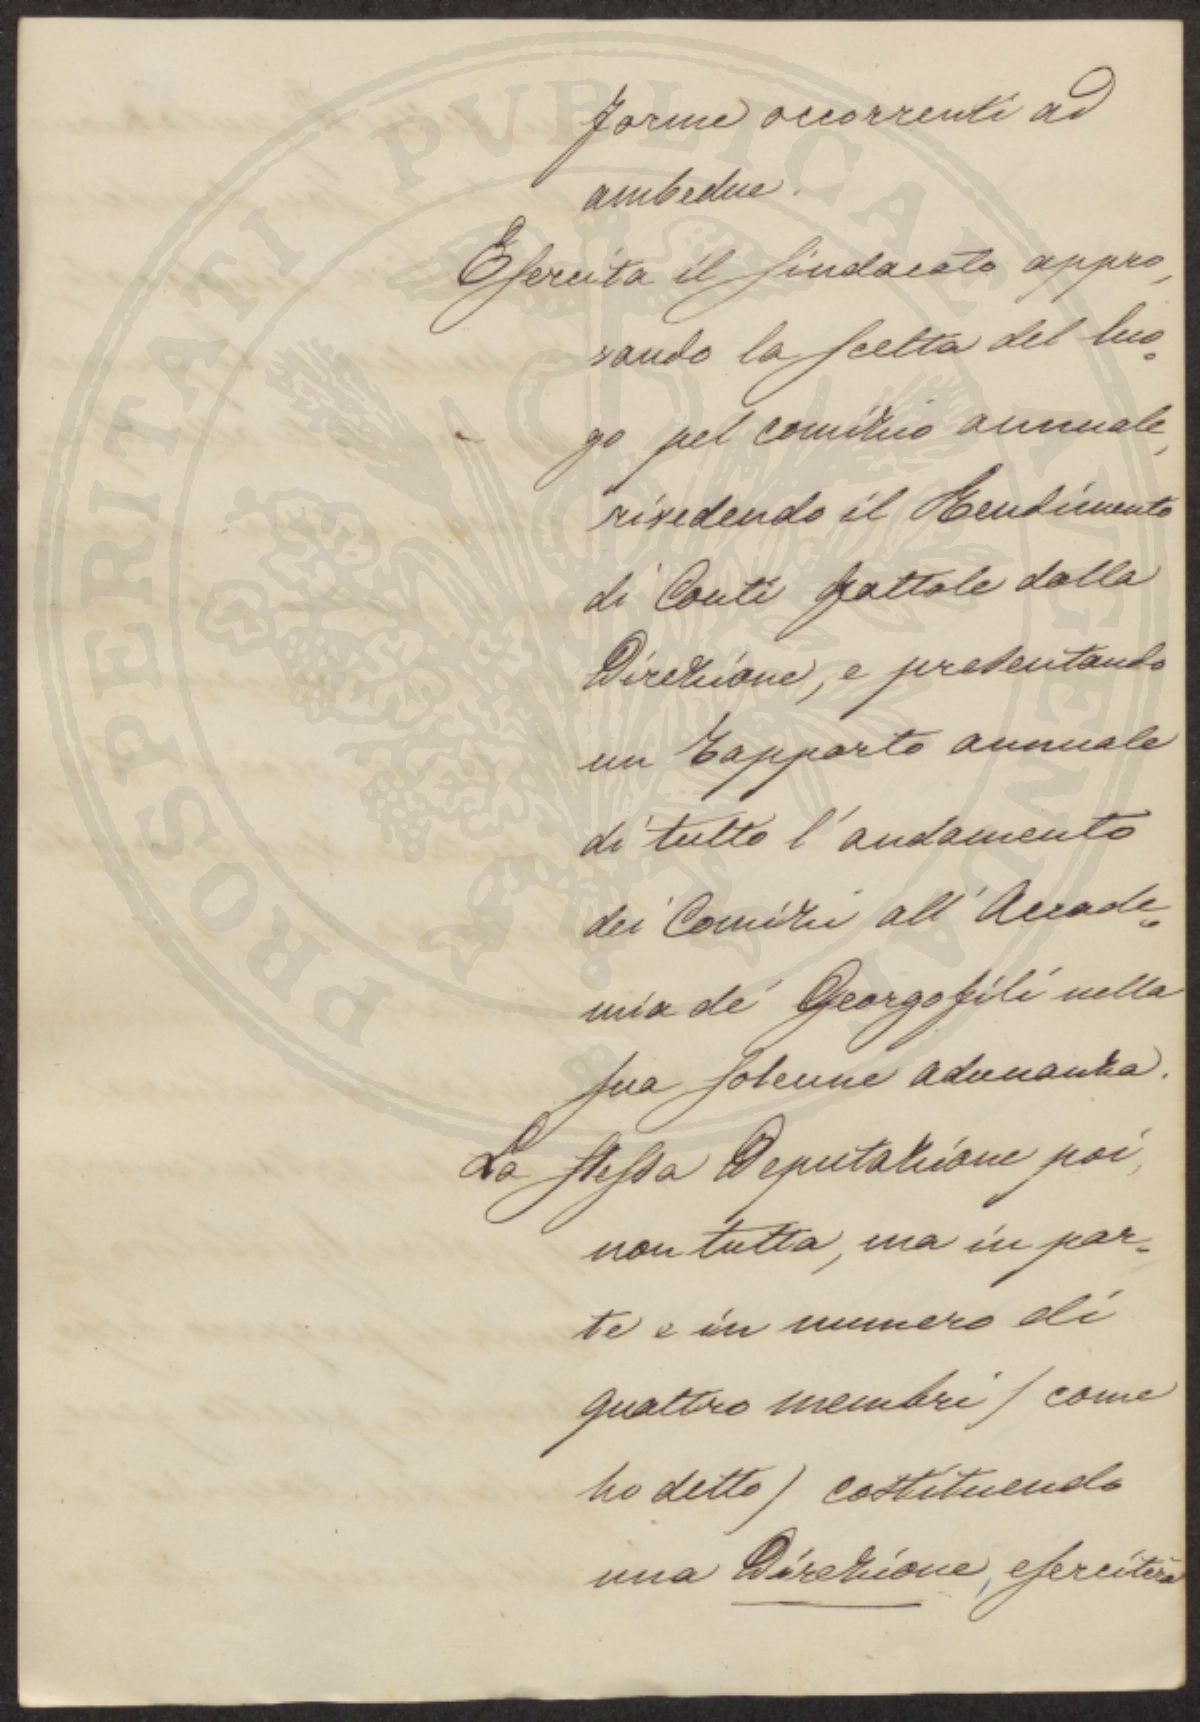 forme occorrenti ad
ambedue.
Esercita il sindacato appro,
vando la scelta del luo=
go pel comizio annuale,
rivedendo il Rendimento
di Conti fattole dalla
Direzione, e presentando
un Rapporto annuale
di tutto l'andamento
dei Comizi all'Accade=
mia de' Georgofili nella
sua solenne adunanza.
La stessa Deputazione poi,
non tutta, ma in par=
te e in numero di
quattro membri / come
ho detto / costituendo
una Direzione, eserciterà
PROSPERITATI PUBLICAE AUGENDAE